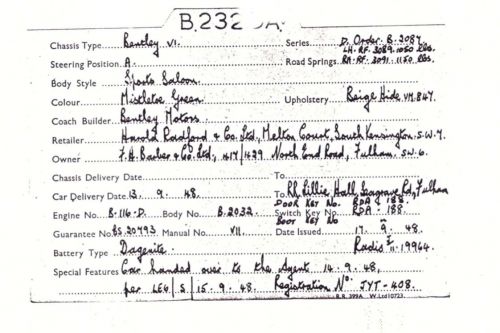 B.232 DA.
Chassis Type Bentley VI. Series D. Order. B. 2087.
LH. RF. 3089. 1050 lbs.
Steering Position A Road Springs RH. RF. 3091. 1150 lbs.
Body Style Sports Saloon.
Colour Mistletoe Green Upholstery Beige Hide VM.847.
Coach Builder Bentley Motors
Retailer Harold Radford & Co. Ltd., Melton Court, South Kensington. S.W.7.
Owner F.H. Barber & Co. Ltd., 417/429 North End Road, Fulham. S.W.6.
Chassis Delivery Date To
Car Delivery Date 13. 9. 48. To Rd. Lillie Hall, Seagrave Rd, Fulham
Door Key No. RDA 188.
Engine No. B-116-D. Body No. B.2032. Switch Key No. RDA. 188.
Boot Key No
Guarantee No. BS.20493. Manual No. VII. Date Issued 17. 9. 48.
Battery Type Dagenite. Radio 11-19964.
Special Features Car handed over to the Agent 14. 9. 48.
per LEG/S/15. 9. 48. Registration No. JYT-408.
R.R. 399A W.Ltd 10723